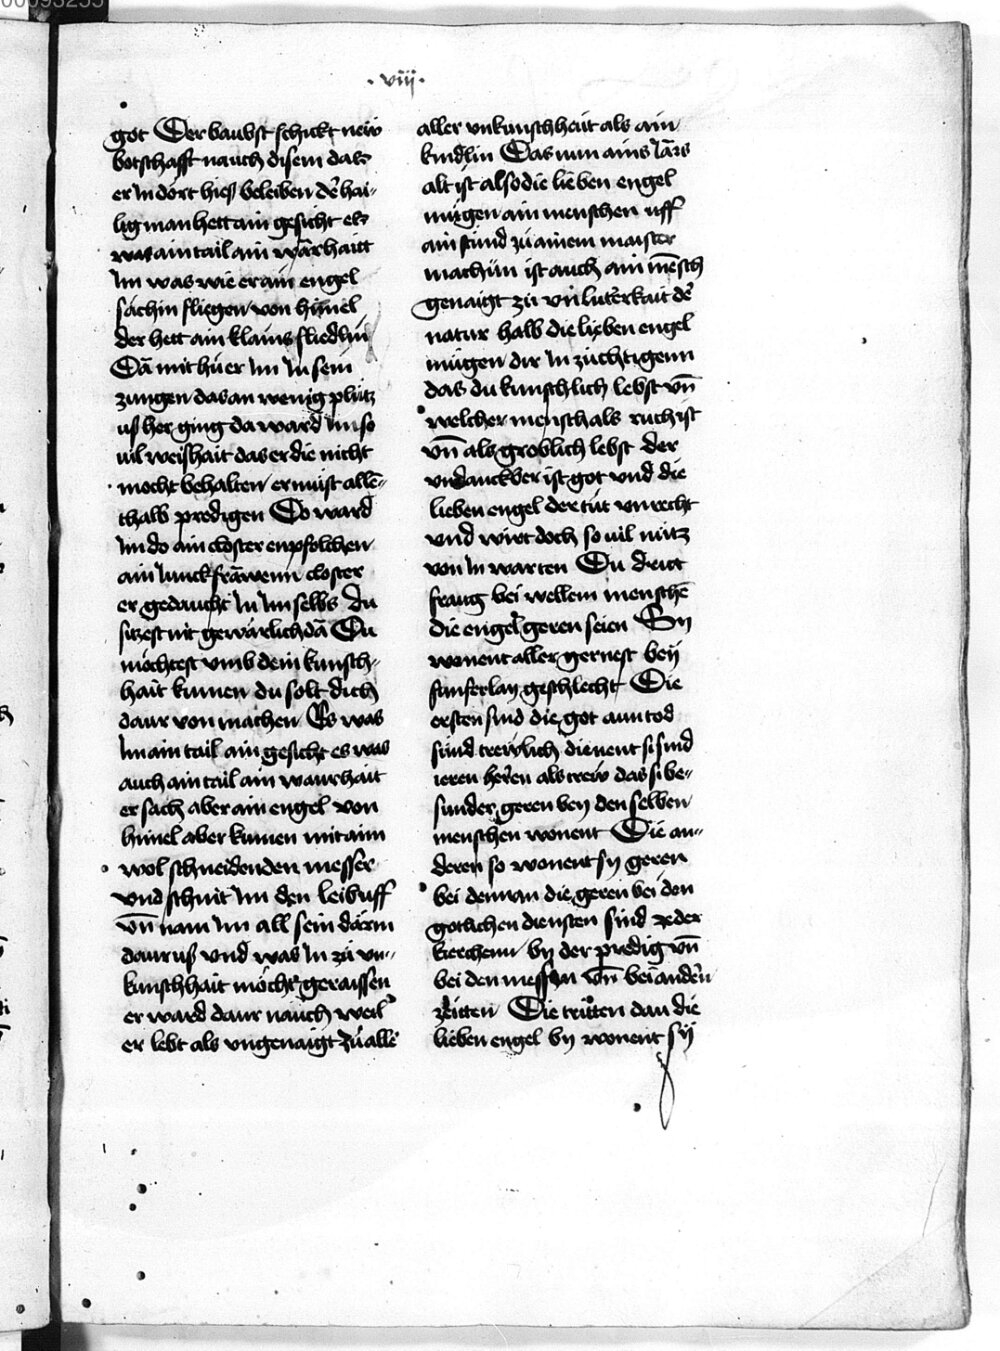 ·viij·
got Der baubst schickt new
botschafft nauch disem das
er in dort hieß beleiben dē hai-
lig man hett ain gesicht es
was ain tail ain warhaitt
Im was wie er ain engel
sach in fliegen von himel
der hett ain klains fliedlin
Dā mit hů er im in sein
zungen das an wenig plůtz
us her ging da ward im so
uil weishait das er die nicht
mocht behalten er must allē-
thalb predigen Do ward
im do ain closter enpfolchen
ain iunckfrawenn closter
er gedaucht in im selbs du
sitzest nit gewarlich dā Du
mochtest umb dein kunsch-
hait kumen du solt dich
daur von machen Es was
im ain tail ain gesicht es was
auch ain tail ain waurhait
er sach aber ain engel von
himel aber kumen mit aim
wol schneidenden messer
und schnit im den leib uff
vn̄ nam im all sein därm
dauruß und was in zů vn-
kunschhait mocht geraissen
er ward daur nauch weil
er lebt als ungenaigt zů alle
aller unkunschhait als ain
kindlin Das nun ains iars
alt ist also die lieben engel
mügen ain menschen uff
ain stund zů ainem maister
machun ist auch ain mēsch
genaigt zů vn luterkait dē
natur halb die lieben engel
mügen dir in züchtigenn
das du kunschlich lebst vn̄
welcher mensch als ruch ist
vn̄ als groblich lebst der
undanckber ist got und die
lieben engel der tůt unrecht
und wirt doch so uil nütz
von in warten Du dritt
fraug bei wellem menschē
die engel geren seien Sy
wonent aller gernest beÿ
funferlay geschlecht Die
ersten sind die got aun tod
sünd trewlich dienent si sind
ieren heren als trew das si be-
sunder geren bey den selben
menschen wonent Die an-
deren so wonent sy geren
bei den man die geren bei den
gotlichen diensten sind zeder
kirchenn by der predig vn̄
bei den messen vn̄ bei andern
zeitten Die tritten dan die
lieben engel by wonent sÿ